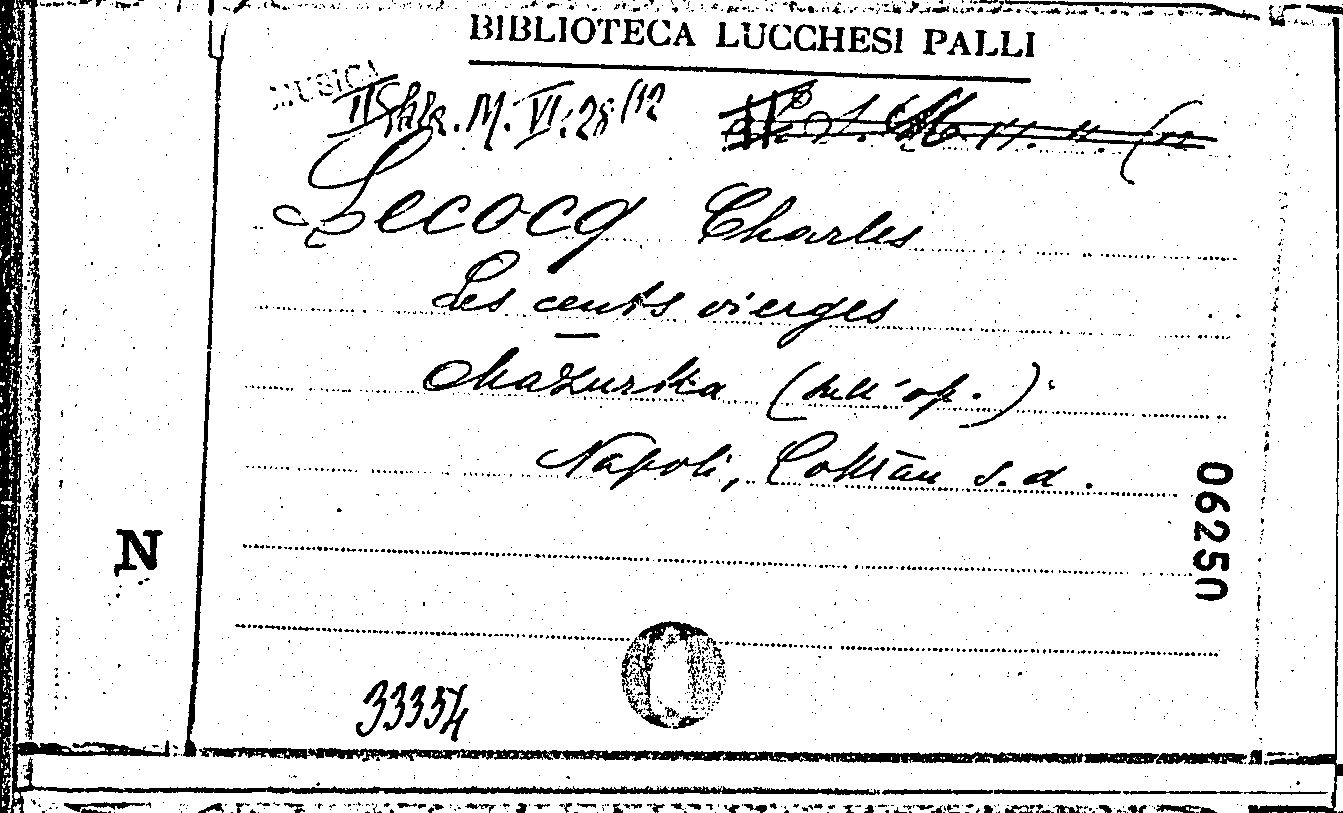 BIBLIOTECA LUCCHESI PALLI
MUSICA
II Sala. M. VI. 28/12
Lecocq Charles
Les cents vierges
Mazurka (dell'op.)
Napoli, Cottrau s.d.
06250
N
33354